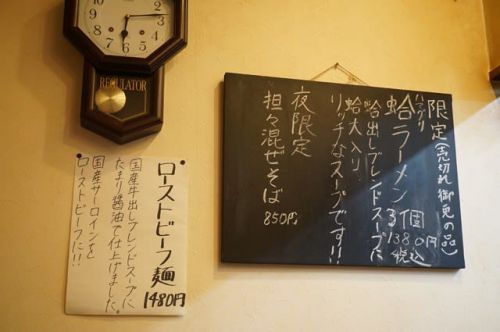 REGULATOR
限定(売切れ御免の品)
ハマグリ
蛤ラーメン3個
1380円
税込
蛤出しブレンドスープに
蛤大入り、
リッチなスープです!!
夜限定
担々混ぜそば
850円
ローストビーフ麺
1480円
国産牛出しブレンドスープに
たまり醤油で仕上げました。
国産サーロインを
ローストビーフに!!